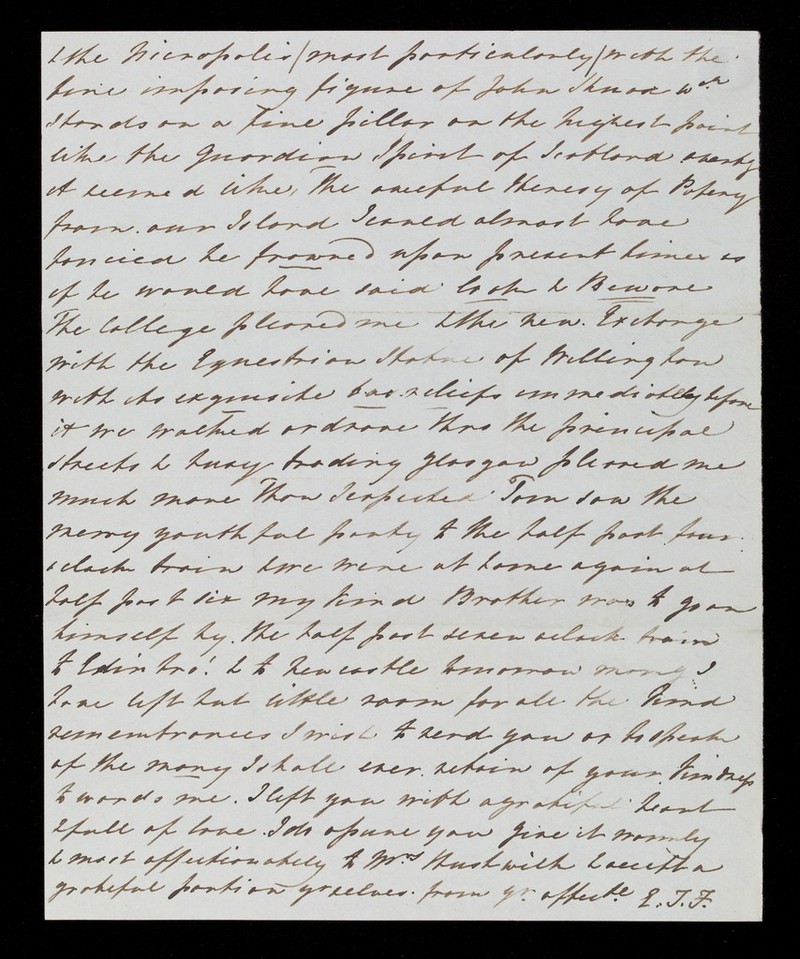 & the Nicropolis (most particularly) with the
fine imposing figure of John Knox wch
stands on a fine pillar on the highest point
like the Guardian Spirit of Scotland
it seemed like, the Heresy of Popery
from our Island I cared almost have
fancied he frowned upon present times as
if he would have said look & Beware
The College pleased me & the new Exchange
with the Equestrian Statue of Wellington
with its exquisite bas reliefs immediately before
it we walked or drove thro the principal
streets & busy trading Glasgow pleased me
much more than I expected Tom saw the
merry youthful party to the half past four
oclock train & we were at home again at
half past six My kind Brother was to go on
himself by the half past seven oclock train
to Edinbro' & to Newcastle tomorrow morng I
have left but little room for all the kind
remembrances I wish to send you or to speak
of the many I shall ever retain of your kindness
towards me. I left you with a grateful heart
& full of love I do assure you give it warmly
& most affectionately to Mrs & accept a
grateful portion yrselves from yr affecte E.T.F.